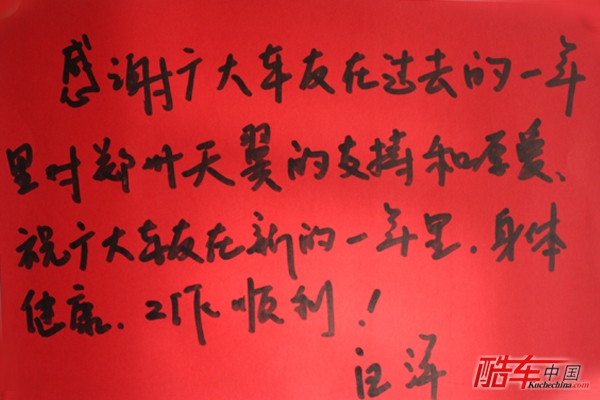 感谢广大车友在过去的一年
里对郑州天翼的支持和厚爱、
祝广大车友在新的一年里,身体
健康、工作顺利!
汪洋
酷车中国
Kochechina.com